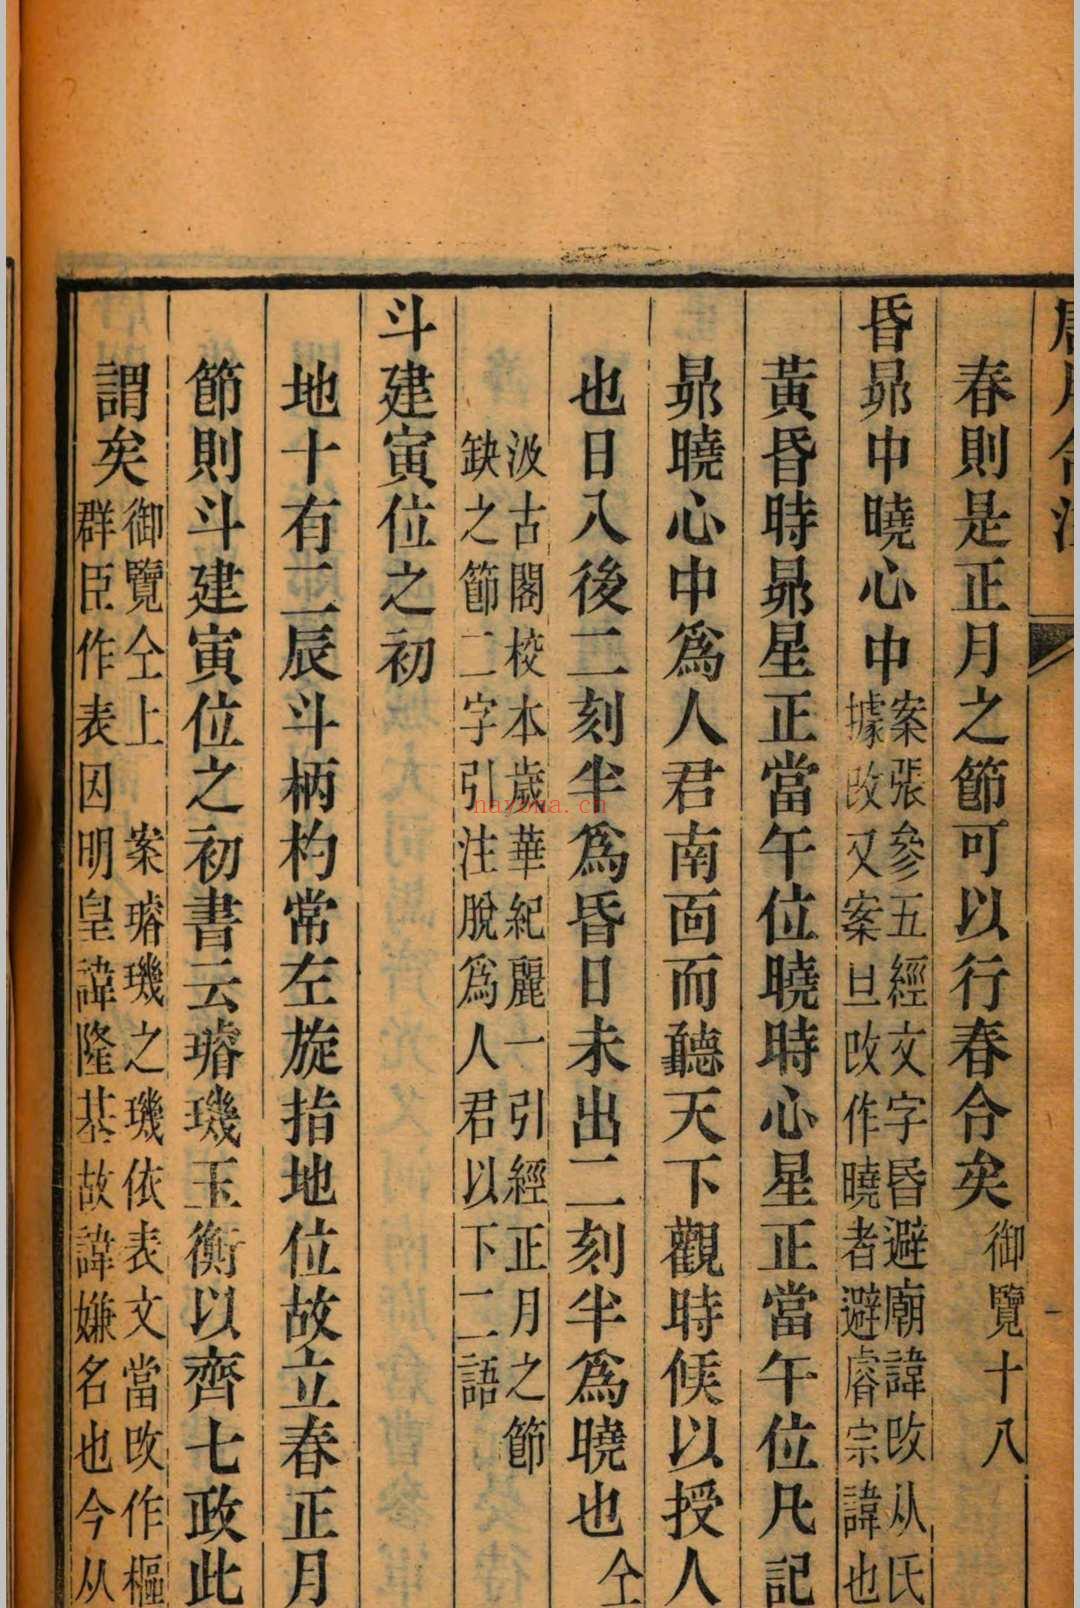 唐月令注
春則是正月之節可以行春合矣御覽十八
昏昴中曉心中案張參五經文字昏避廟諱改从氏
據改又案旦改作曉者避睿宗諱也
黃昏時昴星正當午位曉時心星正當午位凡記
昴曉心中爲人君南面而聽天下觀時候以授人
也日入後二刻半爲昏日未出二刻半爲曉也仝
汲古閣校本歲華紀麗一引經正月之節
缺之節二字引注脫爲人君以下二語
斗建寅位之初
地十有二辰斗柄杓常左旋指地位故立春正月
節則斗建寅位之初書云璿璣玉衡以齊七政此
謂矣御覽仝上 案璿璣之璣依表文當改作樞
群臣作表因明皇諱隆基故諱嫌名也今从
nayona.cn